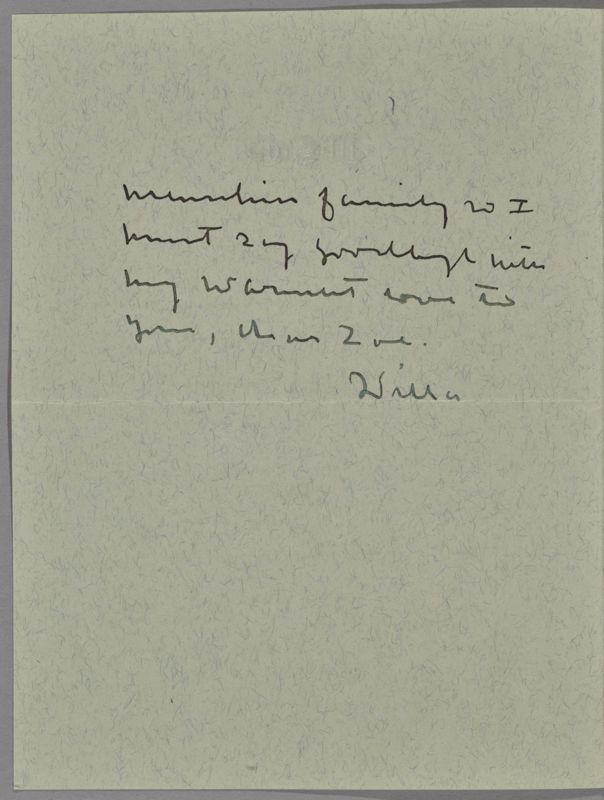 Menuhin family so I
must say goodbye with
my warmest love to
you, dear Zoë.
Willa